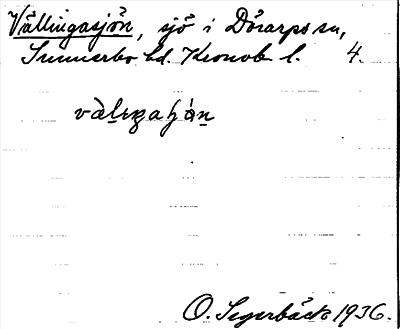 Vällingasjön, sjö i Dörarps sn,
Sunnerbo hd. Kronob. l. 4.
O. Segerbäck 1936.